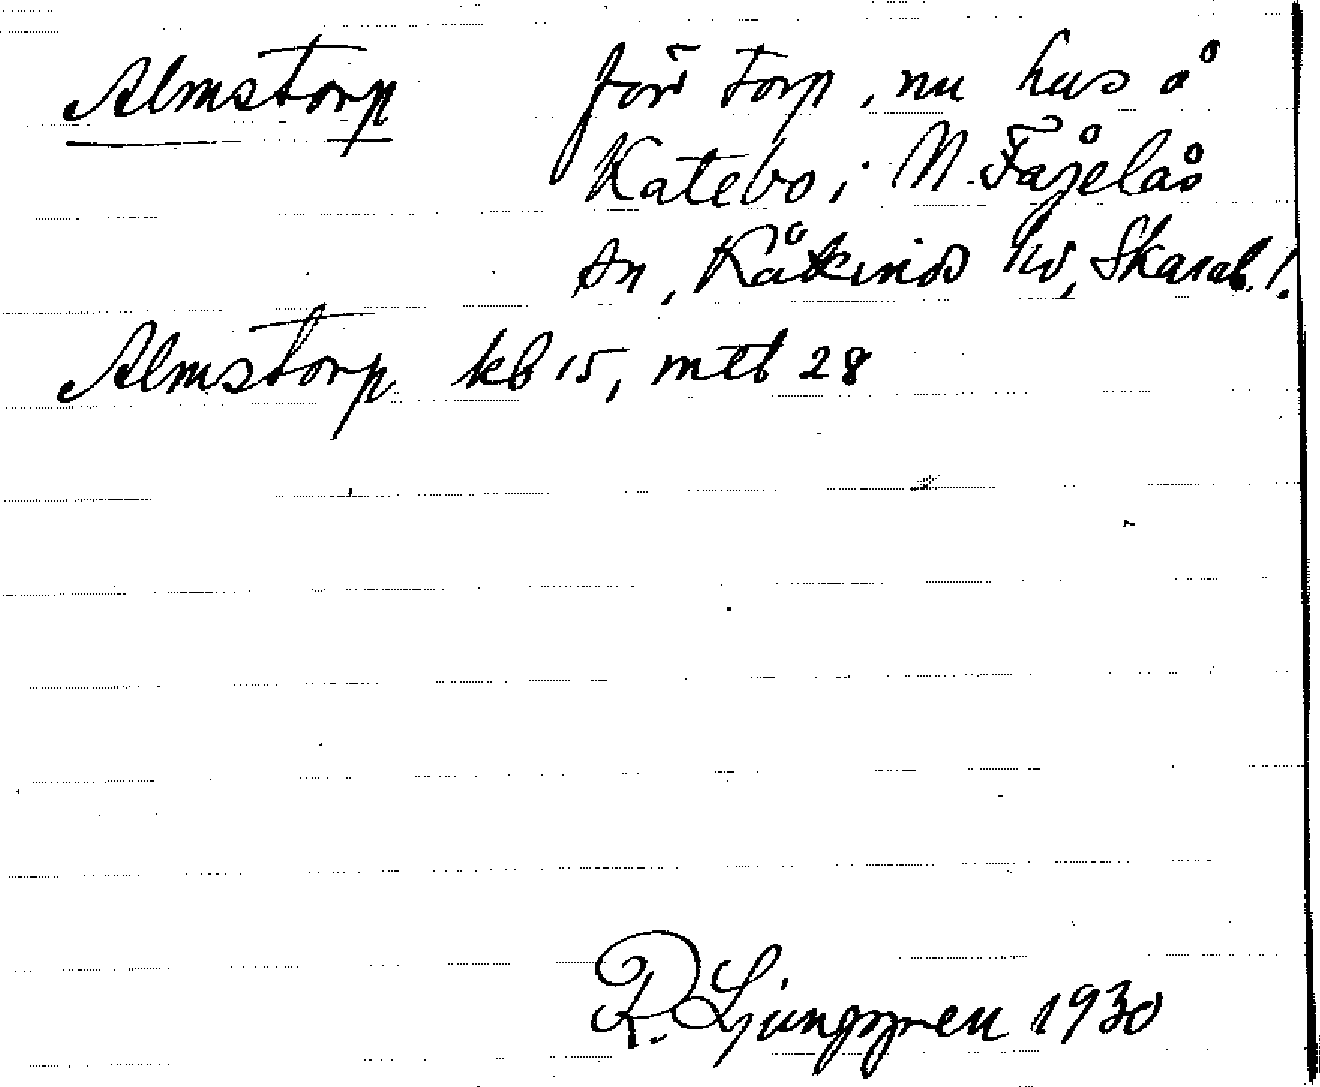 Almstorp förr torp, nu hus å
Katebo i N. Fågelås
sn, Kåkinds hd, Skarab. l.
Almstorp kb 15, mtb 28
R. Ljunggren 1930